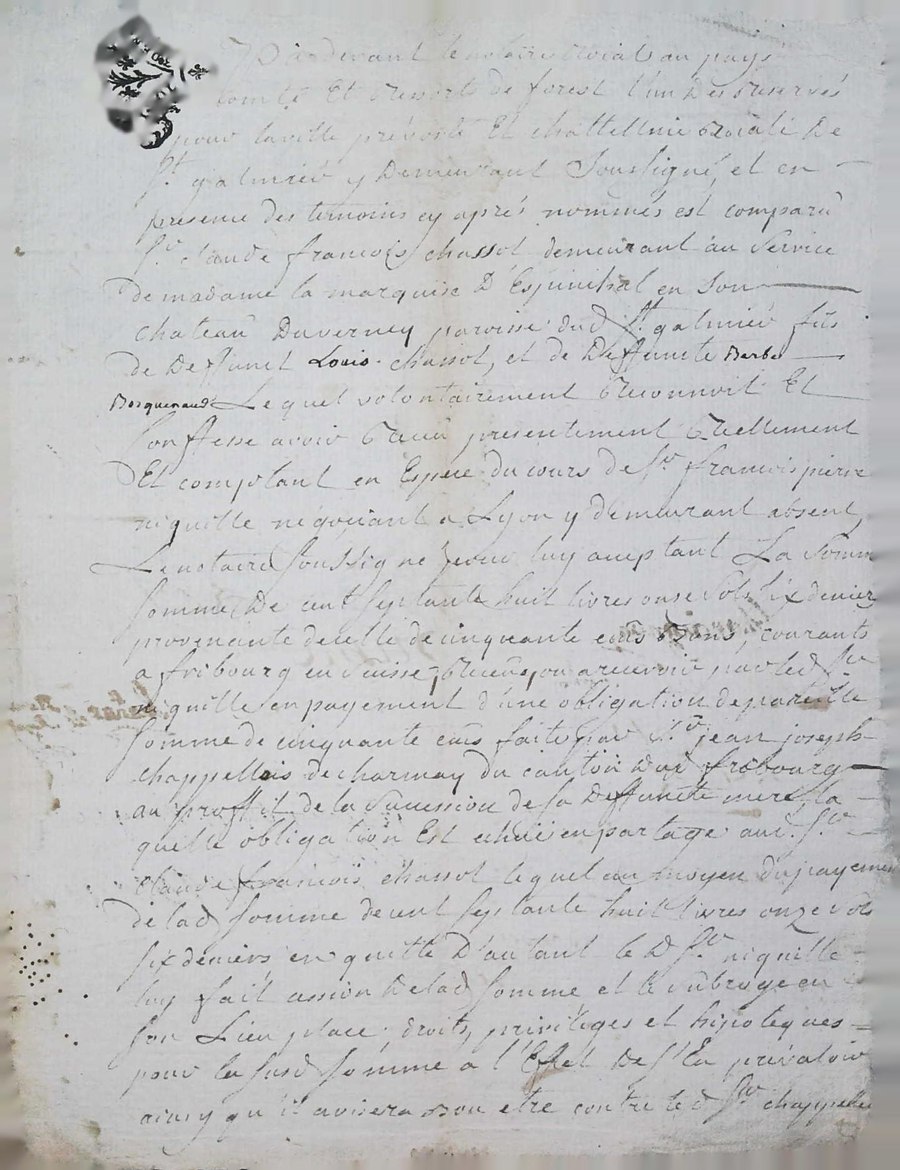 Pardevant le notaire roial au pays
Comté Et ressorts de forest l'un Des reservés
pour la ville prévoté Et châttellnie roiali De
St galmier y Demeurant Soussigné, et en
presence des temoins cy aprés nommés est comparu
Sr claude francois chassot demeurant au Service
de madame la marquise D'Espinchal en Son
chateau Duverney paroisse dud St galmier fils
de Deffunct Louis chassot, et de Deffuncte Barbe
Bosquenaud Lequel volontairement reconnoit Et
Confesse avoir recu presentement réellement
Et comptant en Espece du cours de Sr francois pierre
niquille négociant a Lyon y demeurant absent,
Le notaire Soussigné pour luy acceptant La Somm
Somme De cent Septante huit livres onse Sols Six deniers
provenante de celle de cinquante ecus bons, courants
a fribourg en Suisse, recus, ou a recevoir par led Sr
niquille en payement d'une obligation de pareille
Somme de cinquante ecus faite par Sr jean joseph
chappellois de charmay du canton Dud fribourg
au proffit de la Sucession de Sa Deffuncte mere, la
quelle obligation Est echuë en partage aud. Sr
Claude francois chassot lequel au moyen du payemen
de lad Somme de cent Septante huit livres onze Sols
Six deniers en quitte D'autant le D Sr niquille
luy fait cession De lad Somme et le Subroge en
Son Lieu place, droits, privileges et hipoteques
pour la Susd Somme a l'Effet De S'En prévaloir
ainsy qu'il avisera bon etre contre led Sr chappelle